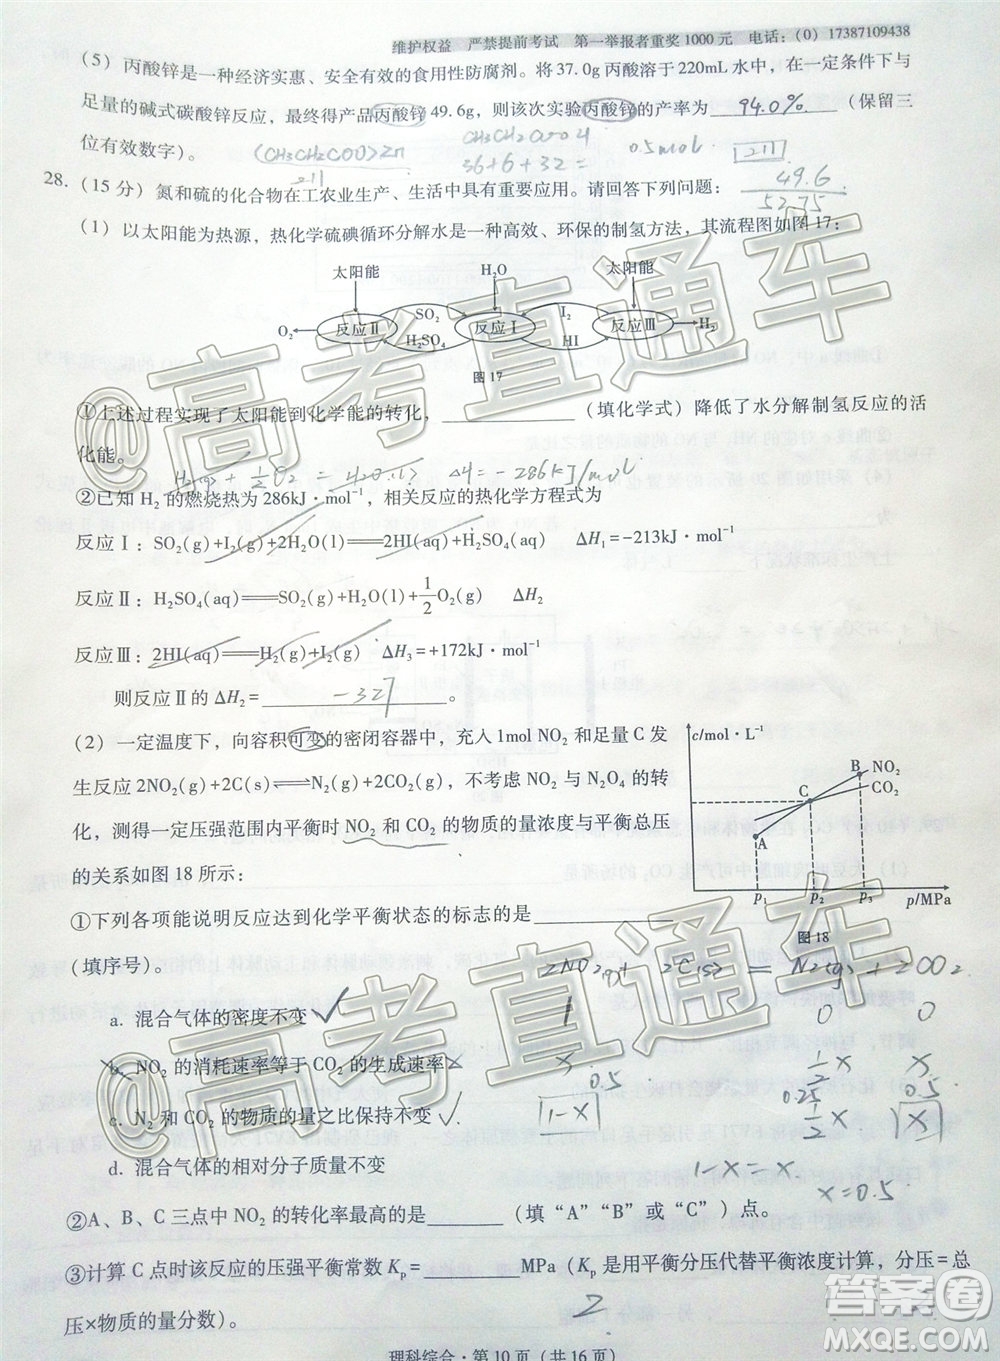 维护权益 严禁提前考试 第一举报者重奖1000元 电话：(0) 17387109438
（5）丙酸锌是一种经济实惠、安全有效的食用性防腐剂。将37.0g丙酸溶于220mL水中，在一定条件下与
足量的碱式碳酸锌反应，最终得产品丙酸锌49.6g，则该次实验丙酸锌的产率为 94.0% （保留三
位有效数字）。
(CH3CH2COO)2Zn
211
CH3CH2COOH
36+6+32=
0.5mol
211
49.6
52.75
28.（15分）氮和硫的化合物在工农业生产、生活中具有重要应用。请回答下列问题：
（1）以太阳能为热源，热化学硫碘循环分解水是一种高效、环保的制氢方法，其流程图如图17：
太阳能 H₂O 太阳能
SO₂ I₂
O₂ 反应Ⅱ 反应Ⅰ 反应Ⅲ H₂
H₂SO₄ HI
图17
①上述过程实现了太阳能到化学能的转化，________（填化学式）降低了水分解制氢反应的活
化能。
②已知H₂的燃烧热为286kJ·mol⁻¹，相关反应的热化学方程式为
反应Ⅰ：SO₂(g)+I₂(g)+2H₂O(l)═2HI(aq)+H₂SO₄(aq) ΔH₁=-213kJ·mol⁻¹
反应Ⅱ：H₂SO₄(aq)═SO₂(g)+H₂O(l)+1/2O₂(g) ΔH₂
反应Ⅲ：2HI(aq)═H₂(g)+I₂(g) ΔH₃=+172kJ·mol⁻¹
则反应Ⅱ的ΔH₂= -327 。
（2）一定温度下，向容积可变的密闭容器中，充入1mol NO₂和足量C发
生反应2NO₂(g)+2C(s)⇌N₂(g)+2CO₂(g)，不考虑NO₂与N₂O₄的转
化，测得一定压强范围内平衡时NO₂和CO₂的物质的量浓度与平衡总压
的关系如图18所示：
c/mol·L⁻¹
B NO₂
C CO₂
A
p₁ p₂ p₃ p/MPa
图18
①下列各项能说明反应达到化学平衡状态的标志的是________
（填序号）。
2NO2(g) + 2C(s) = N2(g) + 2CO2
1 0 0
x 1/2x x
0.5 0.25 0.5
1-x 1/2x x
1-x=x
x=0.5
a. 混合气体的密度不变
b. NO₂的消耗速率等于CO₂的生成速率
c. N₂和CO₂的物质的量之比保持不变
d. 混合气体的相对分子质量不变
②A、B、C三点中NO₂的转化率最高的是________（填“A”“B”或“C”）点。
③计算C点时该反应的压强平衡常数Kₚ=________MPa（Kₚ是用平衡分压代替平衡浓度计算，分压=总
压×物质的量分数）。
2
理科综合·第10页（共16页）
@高考直通车
@高考直通车
答案圈
MXQE.COM